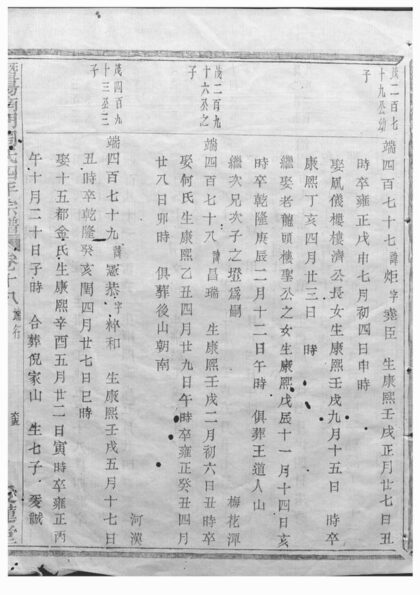 茂二百七
十九丞幼
子
端四百七十七諱炬字堯臣 生康熙壬戌正月廿七日丑
時卒雍正戊申七月初四日申時
娶鳳儀樓樓濟公長女生康熙壬戌九月十五日 時卒
康熙丁亥四月廿三日 時
繼娶老龍頭樓聖公之女生康熙戊辰十一月十四日亥
時卒乾隆庚辰二月十二日午時 俱葬王道人山
繼次兄次子之璒為嗣 梅花潭
茂二百九
十六丞之
子
端四百七十八諱昌瑞 生康熙壬戌二月初六日丑時卒
娶何氏生康熙乙丑四月廿九日午時卒雍正癸丑四月
廿八日卯時 俱葬後山朝南
河漢
茂四百九
十三丞三
子
端四百七十九諱憲恭字梓和 生康熙壬戌五月十七日
丑時卒乾隆癸亥閏四月廿七日巳時
娶十五都金氏生康熙辛酉五月廿二日寅時卒雍正丙
午十月二十日子時 合葬倪家山 生七子 愛誠
宗譜 卷十八 行